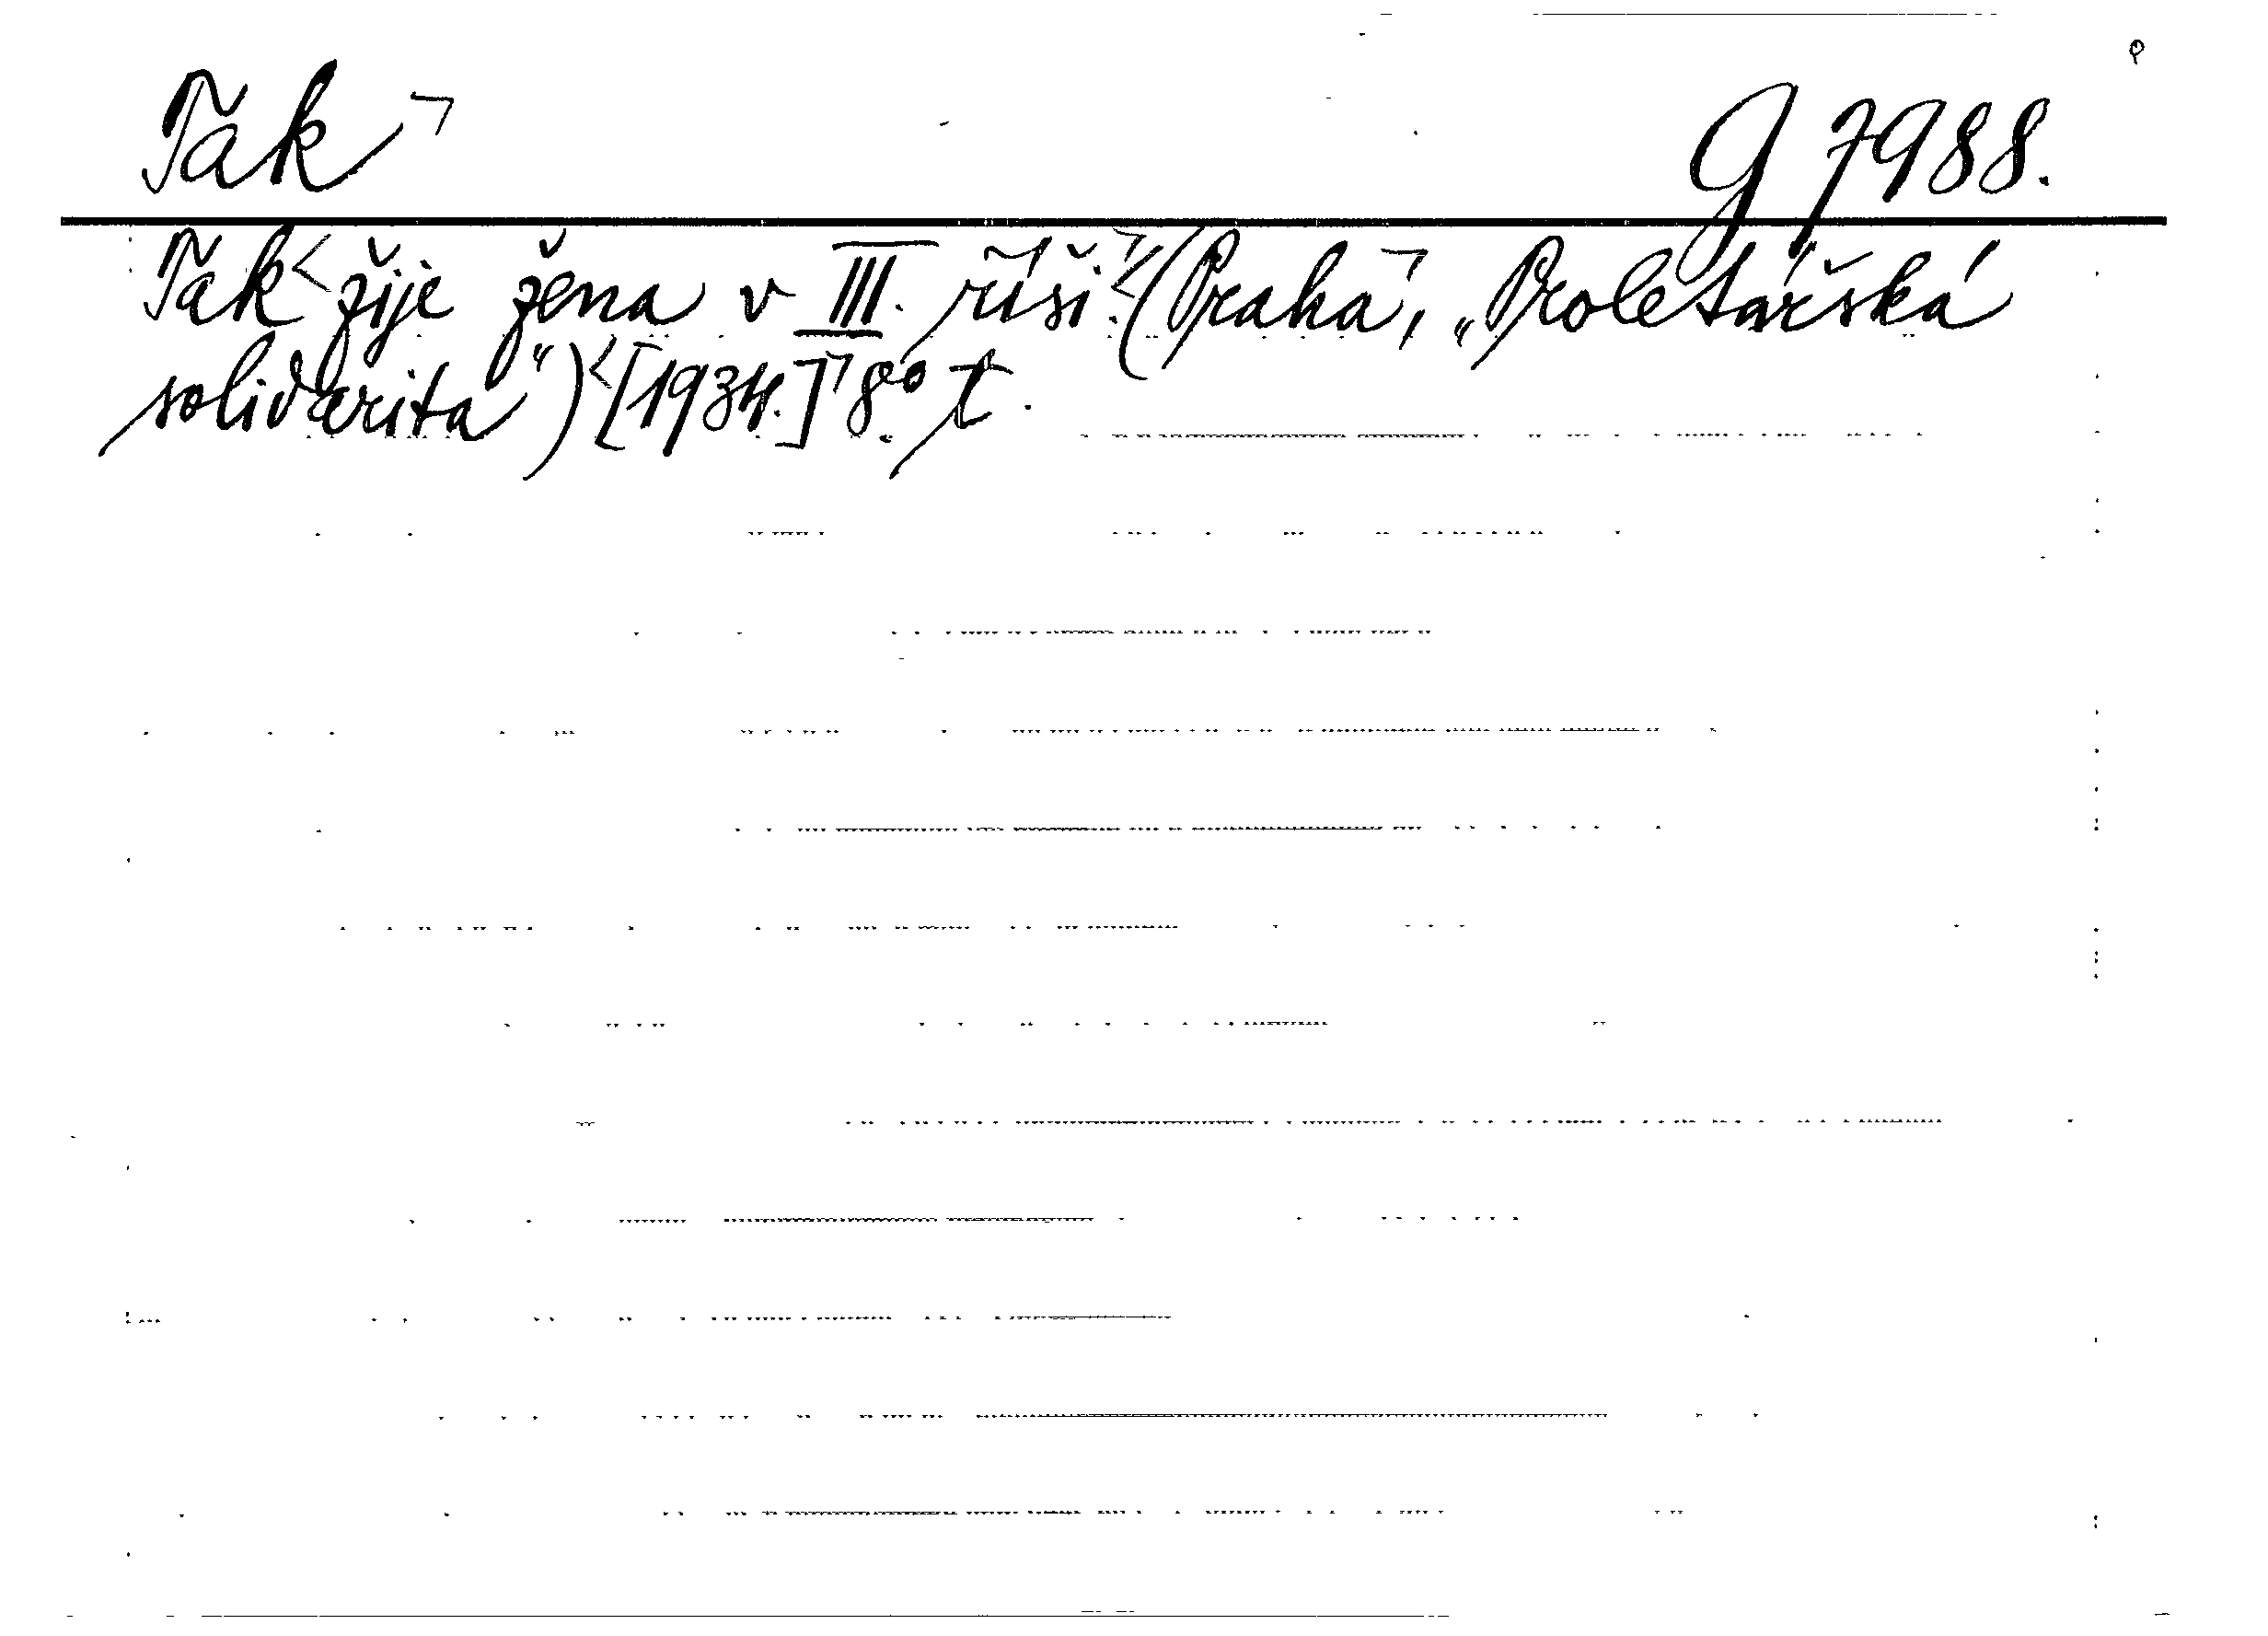 Tak ¬ g 7988.
Tak < žije žena v III. říši. ¬ < (Praha ¬, „Proletářská
solidarita“) < [1934.] ¬ 8° t.